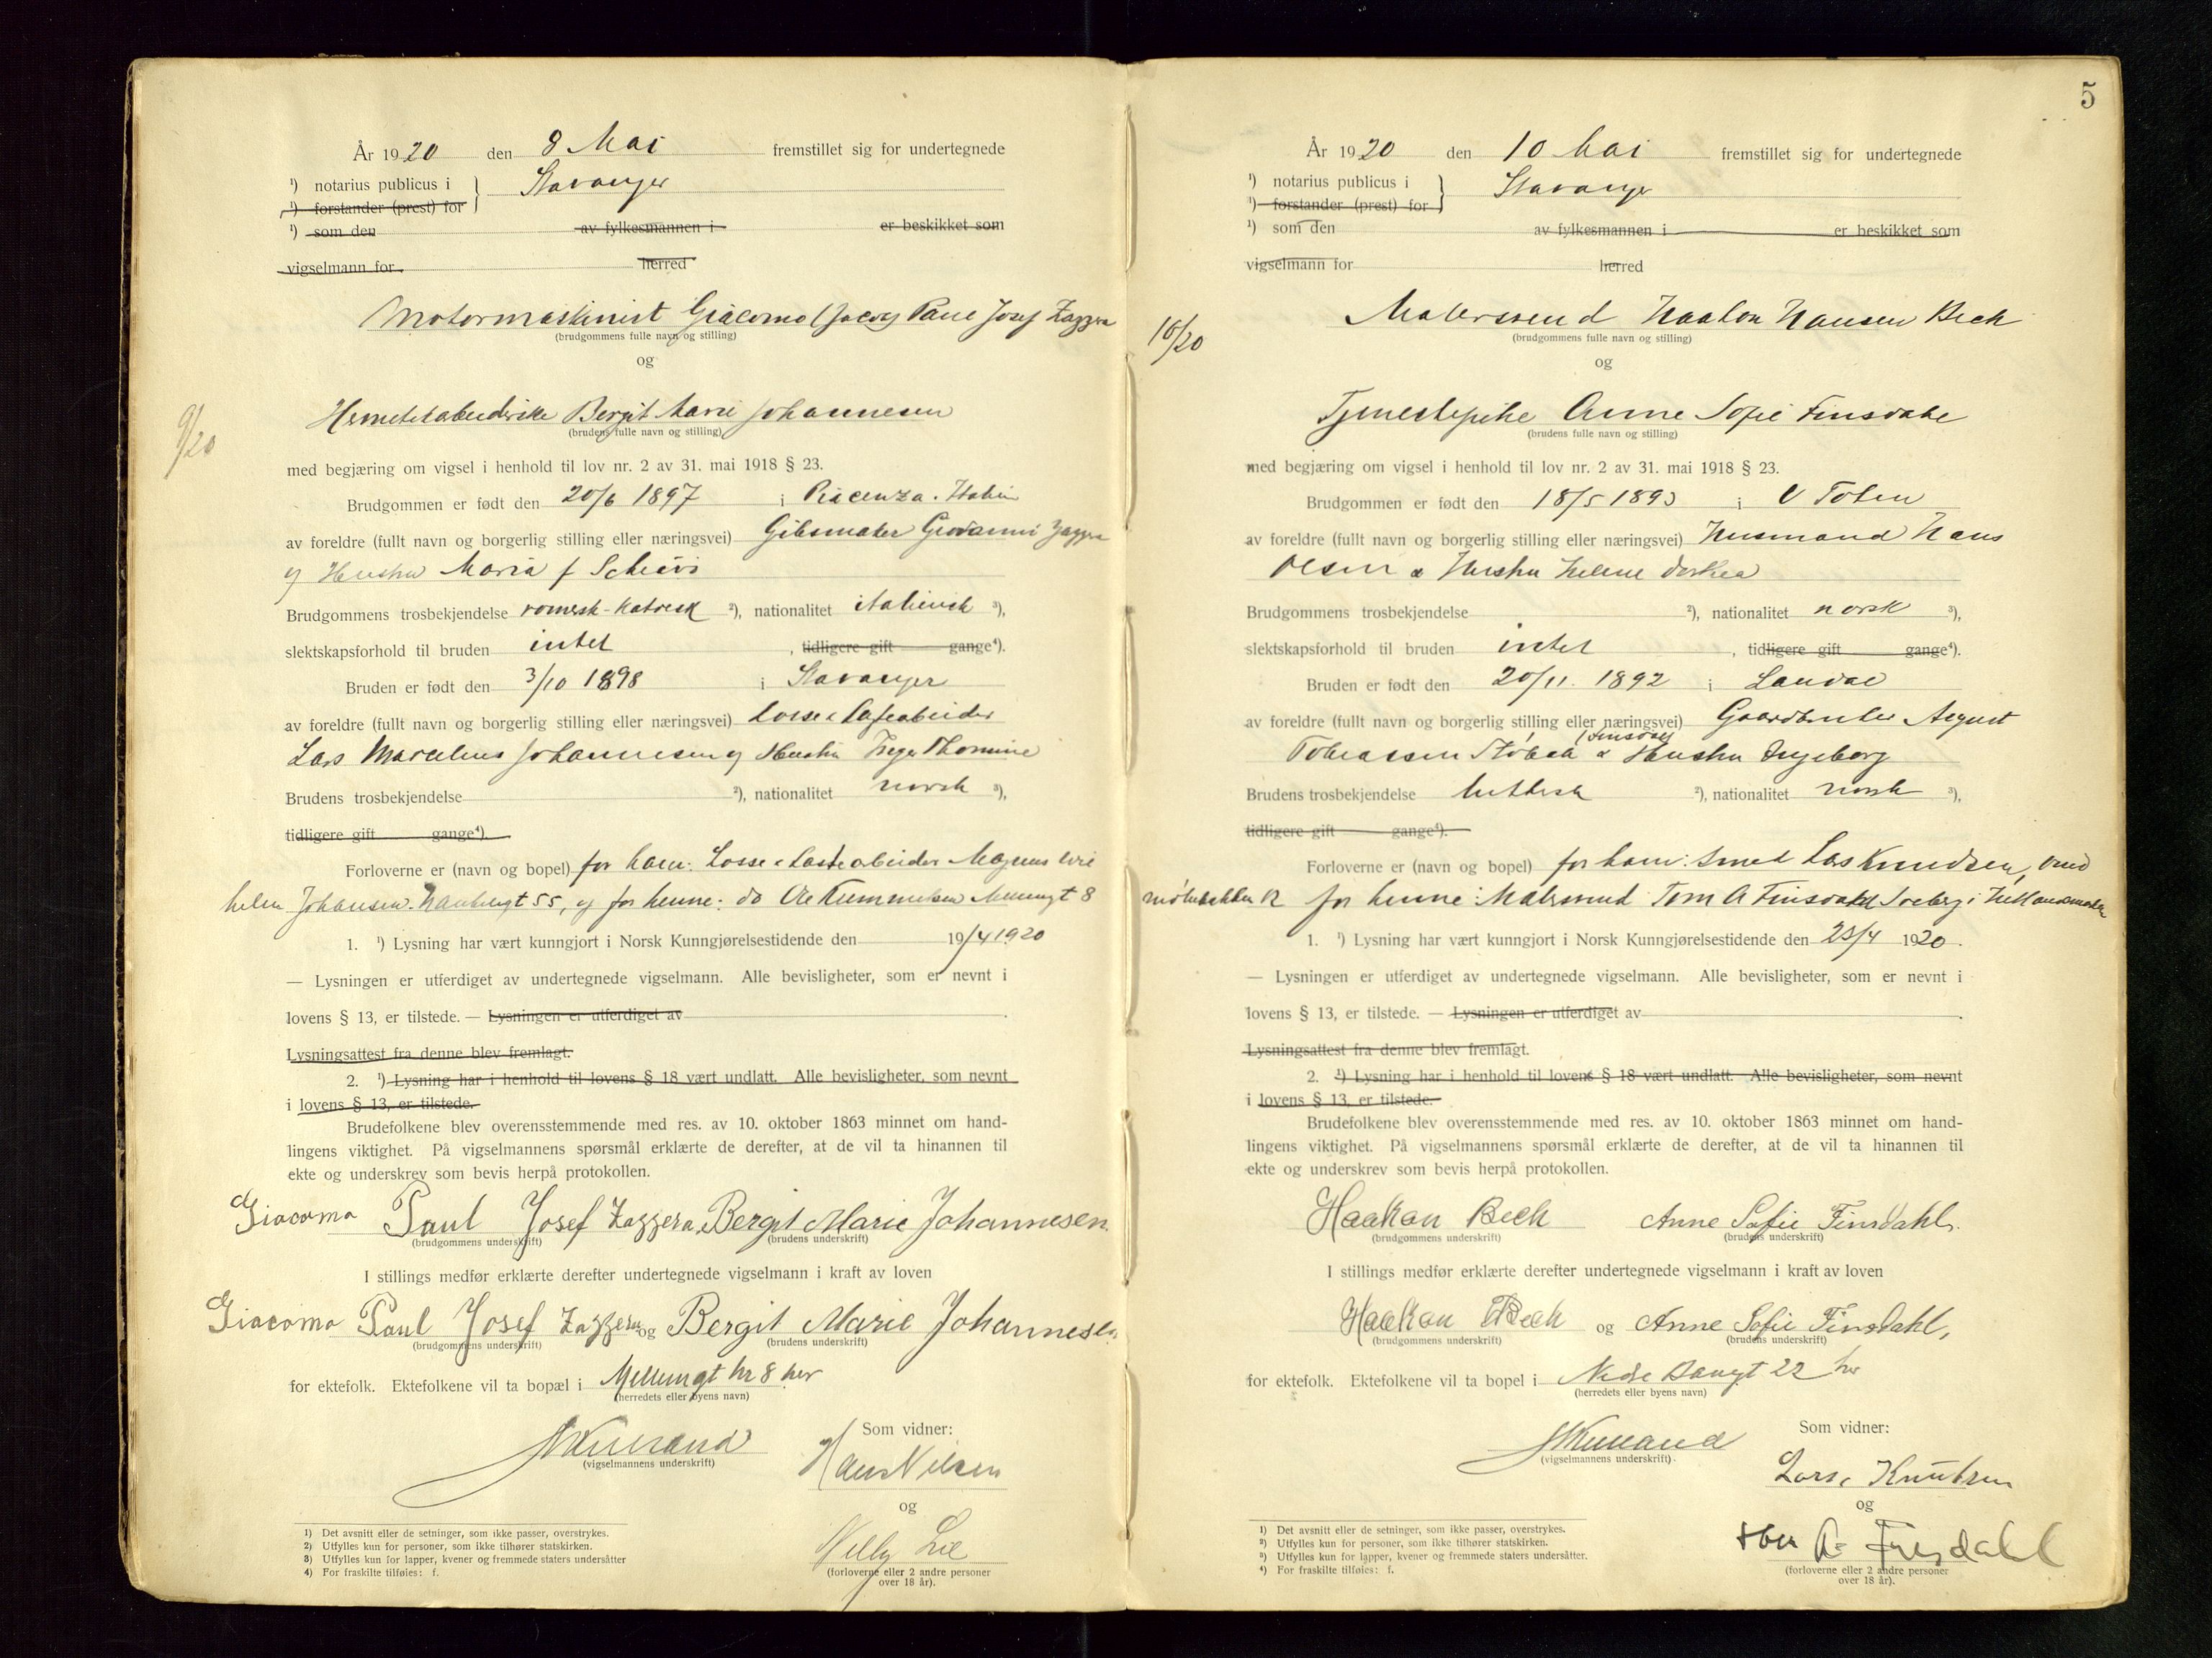 År 1920 den 8 Mai fremstillet sig for undertegnede
¹) notarius publicus i } Stavanger
¹) forstander (prest) for
¹) som den av fylkesmannen i er beskikket som
vigselmann for herred
Motormaskinist Giacomo (Jacob) Paul Josef Zazzera
(brudgommens fulle navn og stilling)
og
9/20
Hermetikarbeiderske Bergit Marie Johannesen
(brudens fulle navn og stilling)
med begjæring om vigsel i henhold til lov nr. 2 av 31. mai 1918 § 23.
Brudgommen er født den 20/6 1897 i Piacenza. Italien
av foreldre (fullt navn og borgerlig stilling eller næringsvei) Gibsmaker Giovanni Zazzera
og Hustru Maria f
Brudgommens trosbekjendelse romersk-katolsk ²), nationalitet italiensk ³),
slektskapsforhold til bruden intet , tidligere gift gange⁴).
Bruden er født den 3/10 1898 i Stavanger
av foreldre (fullt navn og borgerlig stilling eller næringsvei) Losse & Lastearbeider
Lars Marcelius Johannesen og Hustru Thomine
Brudens trosbekjendelse ²), nationalitet norsk ³),
tidligere gift gange⁴).
Forloverne er (navn og bopel) for ham: Losse & Lastearbeider Magnus Wil
helm Johansen. 55, og for henne: do Ole 8
1. ¹) Lysning har vært kunngjort i Norsk Kunngjørelsestidende den 19/4 1920
— Lysningen er utferdiget av undertegnede vigselmann. Alle bevisligheter, som er nevnt i
lovens § 13, er tilstede. — Lysningen er utferdiget av .
Lysningsattest fra denne blev fremlagt.
2. ¹) Lysning har i henhold til lovens § 18 vært undlatt. Alle bevisligheter, som nevnt
i lovens § 13, er tilstede.
Brudefolkene blev overensstemmende med res. av 10. oktober 1863 minnet om hand-
lingens viktighet. På vigselmannens spørsmål erklærte de derefter, at de vil ta hinannen til
ekte og underskrev som bevis herpå protokollen.
Giacomo Paul Josef Zazzera. Bergit Marie Johannesen
(brudgommens underskrift) (brudens underskrift)
I stillings medfør erklærte derefter undertegnede vigselmann i kraft av loven
Giacomo Paul Josef Zazzera og Bergit Marie Johannesen
(brudgommens underskrift) (brudens underskrift)
for ektefolk. Ektefolkene vil ta bopæl i Mellemgt nr 8 her
(herredets eller byens navn)
Som vidner:
(vigselmannens underskrift)
Hans Nilsen
og
Lie
(forloverne eller 2 andre personer
over 18 år).
1) Det avsnitt eller de setninger, som ikke passer, overstrykes.
2) Utfylles kun for personer, som ikke tilhører statskirken.
3) Utfylles kun for lapper, kvener og fremmede staters undersåtter
4) For fraskilte tilføies: f.
5
År 1920 den 10 Mai fremstillet sig for undertegnede
¹) notarius publicus i } Stavanger
¹) forstander (prest) for
¹) som den av fylkesmannen i er beskikket som
vigselmann for herred
10/20
Malersvend Haakon Hansen Bech
(brudgommens fulle navn og stilling)
og
Tjenestepike Anne Sofie Finsdahl
(brudens fulle navn og stilling)
med begjæring om vigsel i henhold til lov nr. 2 av 31. mai 1918 § 23.
Brudgommen er født den 18/5 1893 i V Toten
av foreldre (fullt navn og borgerlig stilling eller næringsvei) Husmand Hans
Olsen & Hustru Helene Dorthea
Brudgommens trosbekjendelse ²), nationalitet norsk ³),
slektskapsforhold til bruden intet , tidligere gift gange⁴).
Bruden er født den 20/11. 1892 i Laudal
av foreldre (fullt navn og borgerlig stilling eller næringsvei) Gaardbruker August
Tobiassen (Finsdal) & Hustru Ingeborg
Brudens trosbekjendelse luthersk ²), nationalitet norsk ³),
tidligere gift gange⁴).
Forloverne er (navn og bopel) for ham: Smed Lars Knudsen,
12 for henne: Malersvend Tom A Finsdahl
1. ¹) Lysning har vært kunngjort i Norsk Kunngjørelsestidende den 23/4 1920.
— Lysningen er utferdiget av undertegnede vigselmann. Alle bevisligheter, som er nevnt i
lovens § 13, er tilstede. — Lysningen er utferdiget av .
Lysningsattest fra denne blev fremlagt.
2. ¹) Lysning har i henhold til lovens § 18 vært undlatt. Alle bevisligheter, som nevnt
i lovens § 13, er tilstede.
Brudefolkene blev overensstemmende med res. av 10. oktober 1863 minnet om hand-
lingens viktighet. På vigselmannens spørsmål erklærte de derefter, at de vil ta hinannen til
ekte og underskrev som bevis herpå protokollen.
Haakon Bech Anne Sofie Finsdahl.
(brudgommens underskrift) (brudens underskrift)
I stillings medfør erklærte derefter undertegnede vigselmann i kraft av loven
Haakon Bech og Anne Sofie Finsdahl,
(brudgommens underskrift) (brudens underskrift)
for ektefolk. Ektefolkene vil ta bopel i Nedre 22 her
(herredets eller byens navn)
Som vidner:
(vigselmannens underskrift)
Lars Knutsen
og
A. Finsdahl
(forloverne eller 2 andre personer
over 18 år).
¹) Det avsnitt eller de setninger, som ikke passer, overstrykes.
²) Utfylles kun for personer, som ikke tilhører statskirken.
³) Utfylles kun for lapper, kvener og fremmede staters undersåtter.
⁴) For fraskilte tilføies: f.